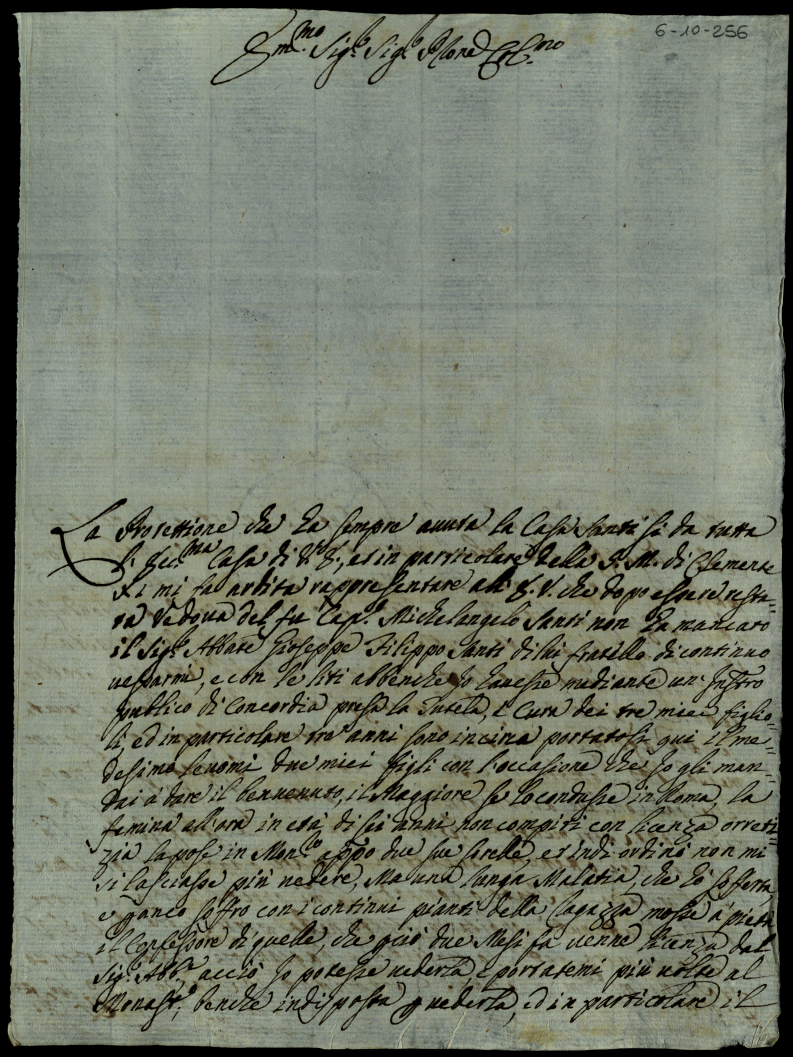 6-10-256
Em.mo Sig.r Sig.r P.rone Col.mo
La Protettione che ha sempre auuta la Casa Santi si da tutta
l' Ecc.ma Casa di V. E., et in particolare della S. M. di Clemente
XI mi fa ardita rappresentare all' E. V. che dopo essere resta=
ta Vedoua del fu Cap.o Michelangelo Santi non ha mancato
il Sig.r Abbate Gioseppe Filippo Santi di lui fratello di continuo
uessarmi, e con le liti abbenche Jo hauesse mediante un' Jnstro
publico di Concordia presa la Tutela, e Cura dei tre miei figlio=
li, ed in particolare tre anni sono incirca portatosi qui il me=
desimo leuomi due miei figli con l'occasione che Jo gli man=
dai à dare il benuenuto, il Maggiore se lo condusse in Roma, la
femina all'ora in età di sei anni non compiti con licenza orreti=
zia la pose in Mon.ro appo due sue sorelle, et indi ordinò non mi
si lasciasse più uedere, Ma una lunga Malatia, che hò sofferta,
e ganco soffro con i continui pianti della ragazza mosse à pietà
il Confessore di quelle, che gciò due Mesi fa uenne licenza dal
Sig.r Abb.e acciò Jo potesse uederla, e portatemi più uolte al
Monast.o, benche indisposta p uederla, ed in particolare il